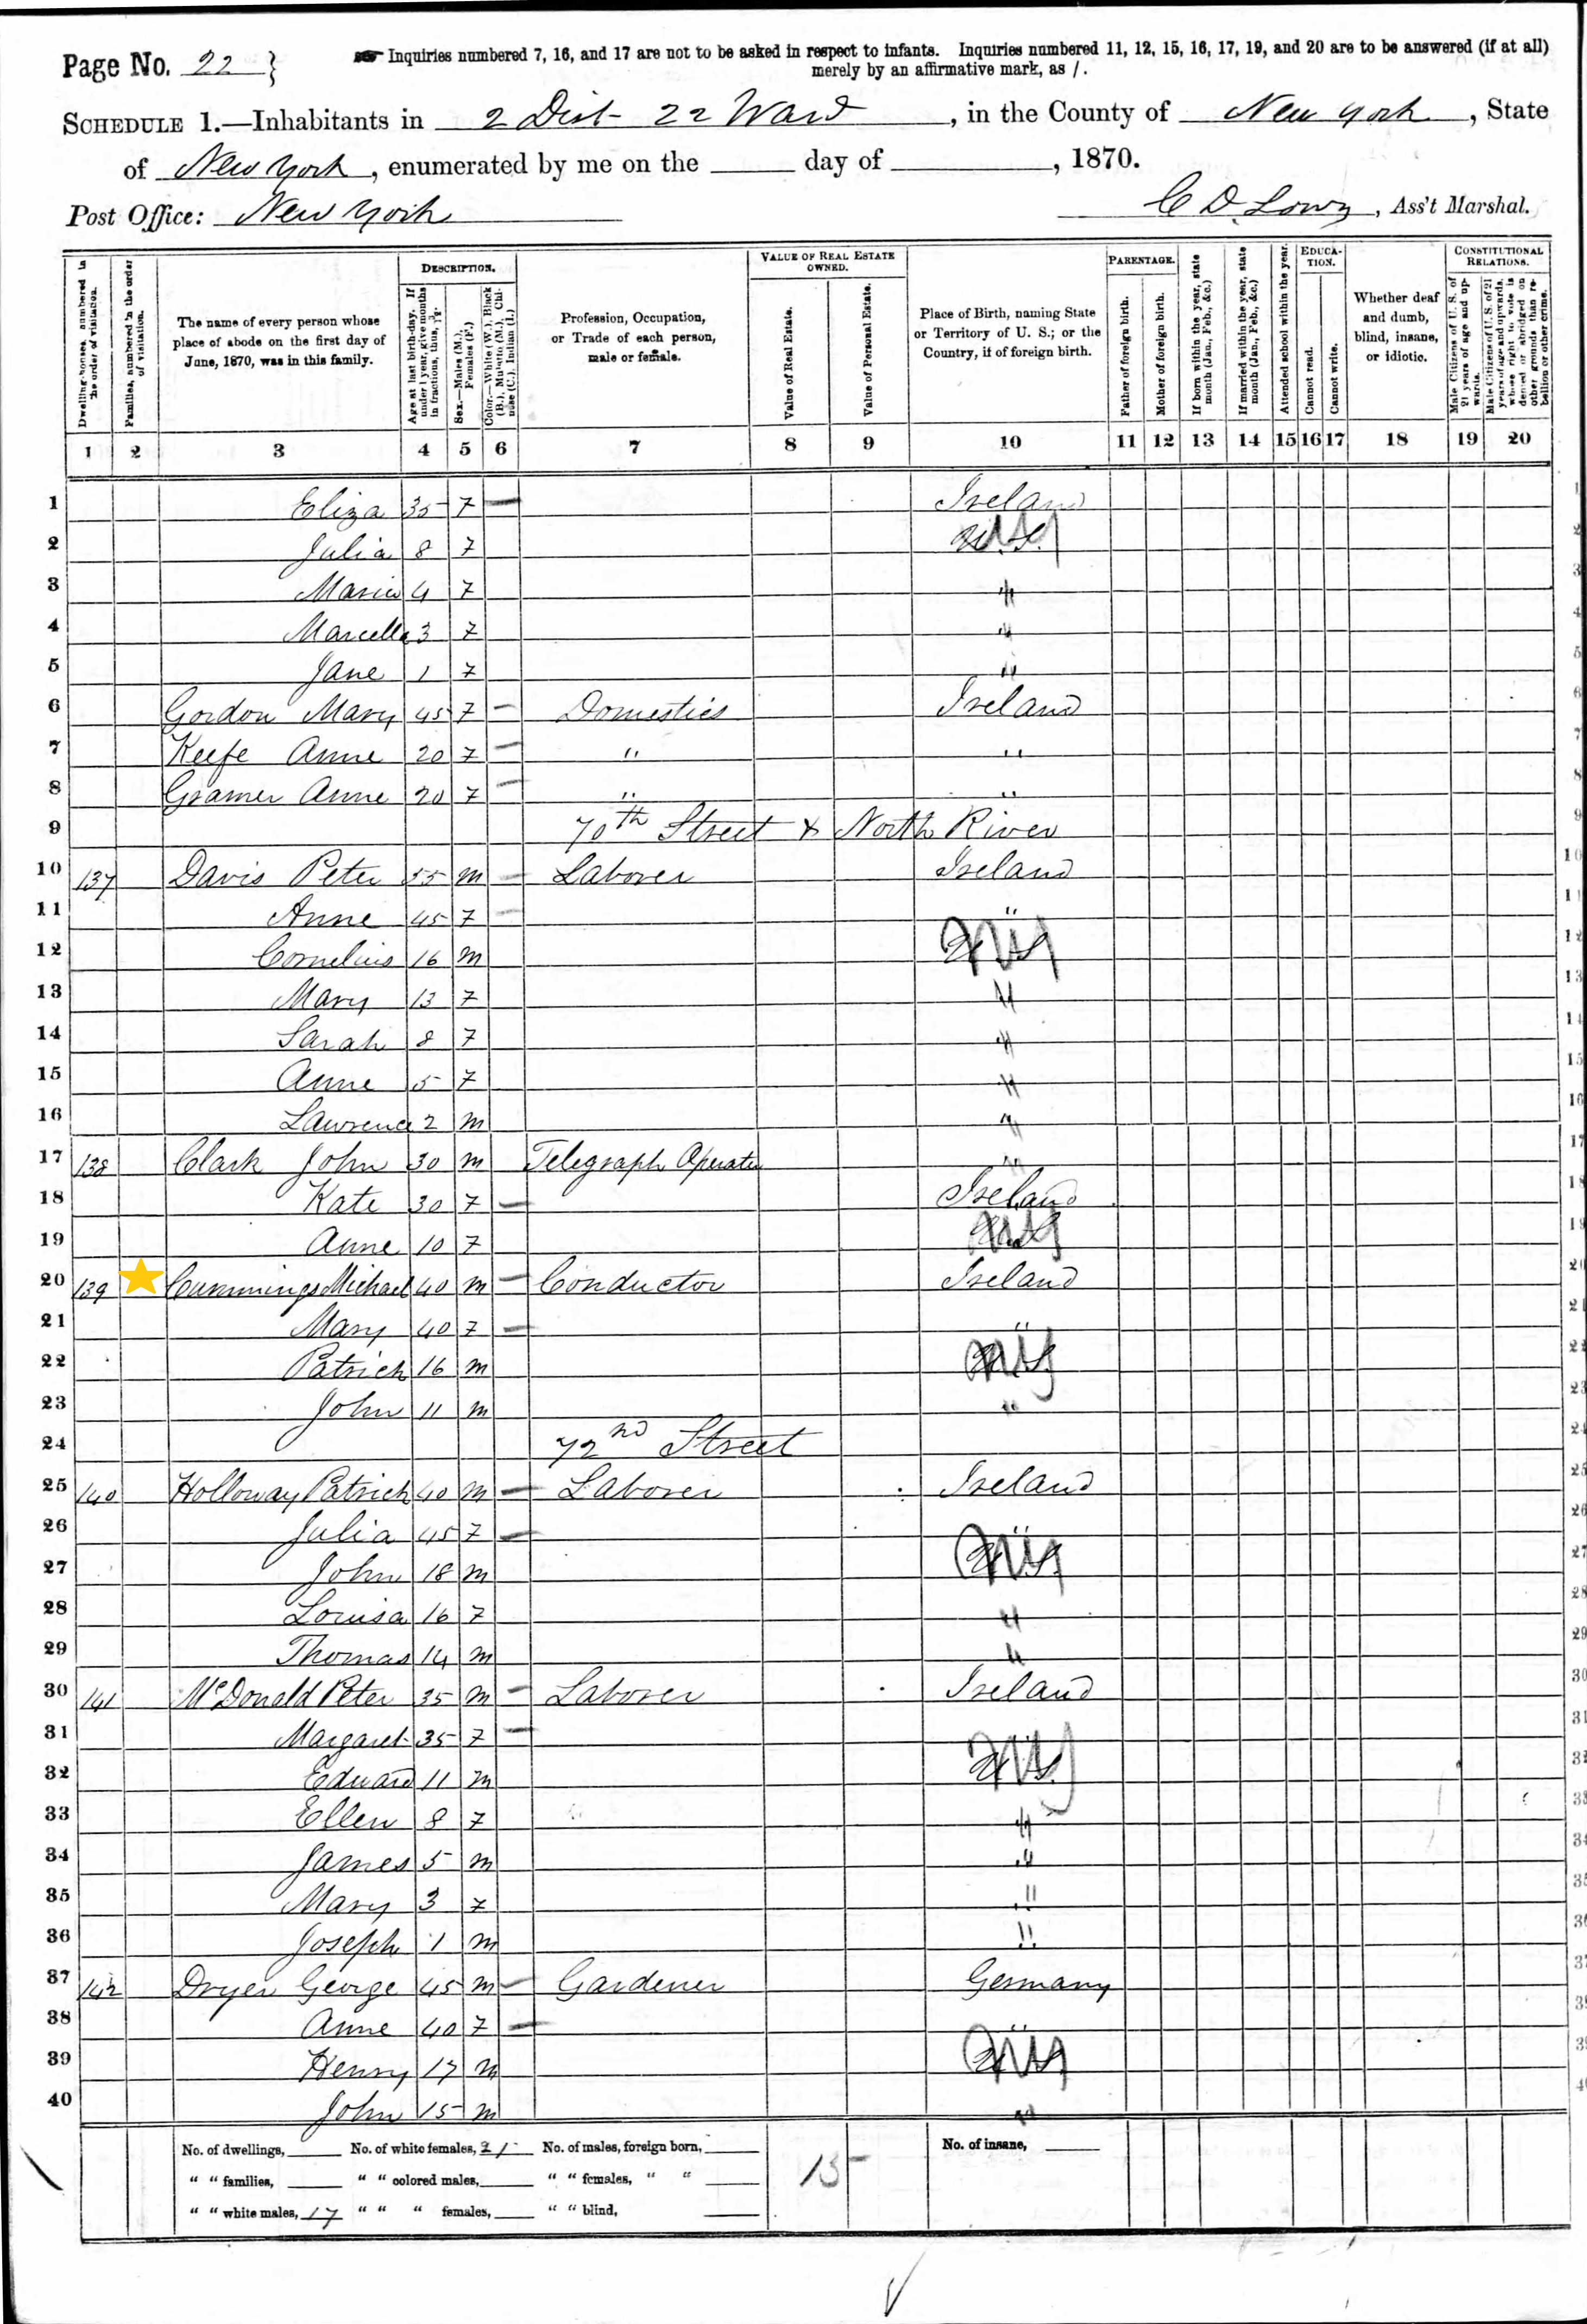 Page No. 22 }
Inquiries numbered 7, 16, and 17 are not to be asked in respect to infants. Inquiries numbered 11, 12, 15, 16, 17, 19, and 20 are to be answered (if at all)
merely by an affirmative mark, as /.
SCHEDULE 1.—Inhabitants in 2 Dist 22 Ward, in the County of New York, State
of New York, enumerated by me on the ____ day of ____, 1870.
Post Office: New York
C D Lowy, Ass't Marshal.
Dwelling-houses, numbered in the order of visitation.
Families, numbered in the order of visitation.
The name of every person whose place of abode on the first day of June, 1870, was in this family.
DESCRIPTION.
Age at last birth-day. If under 1 year, give months in fractions, thus,
Sex.—Males (M.), Females (F.)
Color.—White (W.), Black (B.), Mulatto (M.), Chinese (C.), Indian (I.)
Profession, Occupation, or Trade of each person, male or female.
VALUE OF REAL ESTATE OWNED.
Value of Real Estate.
Value of Personal Estate.
Place of Birth, naming State or Territory of U. S.; or the Country, if of foreign birth.
PARENTAGE.
Father of foreign birth.
Mother of foreign birth.
If born within the year, state month (Jan., Feb., &c.)
If married within the year, state month (Jan., Feb., &c.)
Attended school within the year.
EDUCATION.
Cannot read.
Cannot write.
Whether deaf and dumb, blind, insane, or idiotic.
CONSTITUTIONAL RELATIONS.
Male Citizens of U. S. of 21 years of age and upwards.
Male Citizens of U. S. of 21 years of age and upwards, whose right to vote is denied or abridged on other grounds than rebellion or other crime.
1 2 3 4 5 6 7 8 9 10 11 12 13 14 15 16 17 18 19 20
1 Eliza 35 F Ireland
2 Julia 8 F U.S.
3 Maria 4 F "
4 Marcella 3 F "
5 Jane 1 F "
6 Gordon Mary 45 F Domestics Ireland
7 Keefe Anne 20 F " "
8 Gramer Anne 20 F " "
9 70th Street & North River
10 137 Davis Peter 55 M Laborer Ireland
11 Anne 45 F "
12 Cornelius 16 M U.S.
13 Mary 13 F "
14 Sarah 8 F "
15 Anne 5 F "
16 Lawrence 2 M "
17 138 Clark John 30 M Telegraph Operator "
18 Kate 30 F Ireland
19 Anne 10 F U.S.
20 139 Cummings Michael 40 M Conductor Ireland
21 Mary 40 F "
22 Patrick 16 M U.S.
23 John 11 M "
24 72nd Street
25 140 Holloway Patrick 40 M Laborer Ireland
26 Julia 45 F "
27 John 18 M U.S.
28 Louisa 16 F "
29 Thomas 14 M "
30 141 McDonald Peter 35 M Laborer Ireland
31 Margaret 35 F "
32 Edward 11 M U.S.
33 Ellen 8 F "
34 James 5 M "
35 Mary 3 F "
36 Joseph 1 M "
37 142 Dryer George 45 M Gardener Germany
38 Anne 40 F "
39 Henry 17 M U.S.
40 John 15 M "
No. of dwellings, ____ No. of white females, 21 No. of males, foreign born, ____ 15 No. of insane, ____
" " families, ____ " " colored males, ____ " " females, " " ____
" " white males, 17 " " " females, ____ " " blind, ____